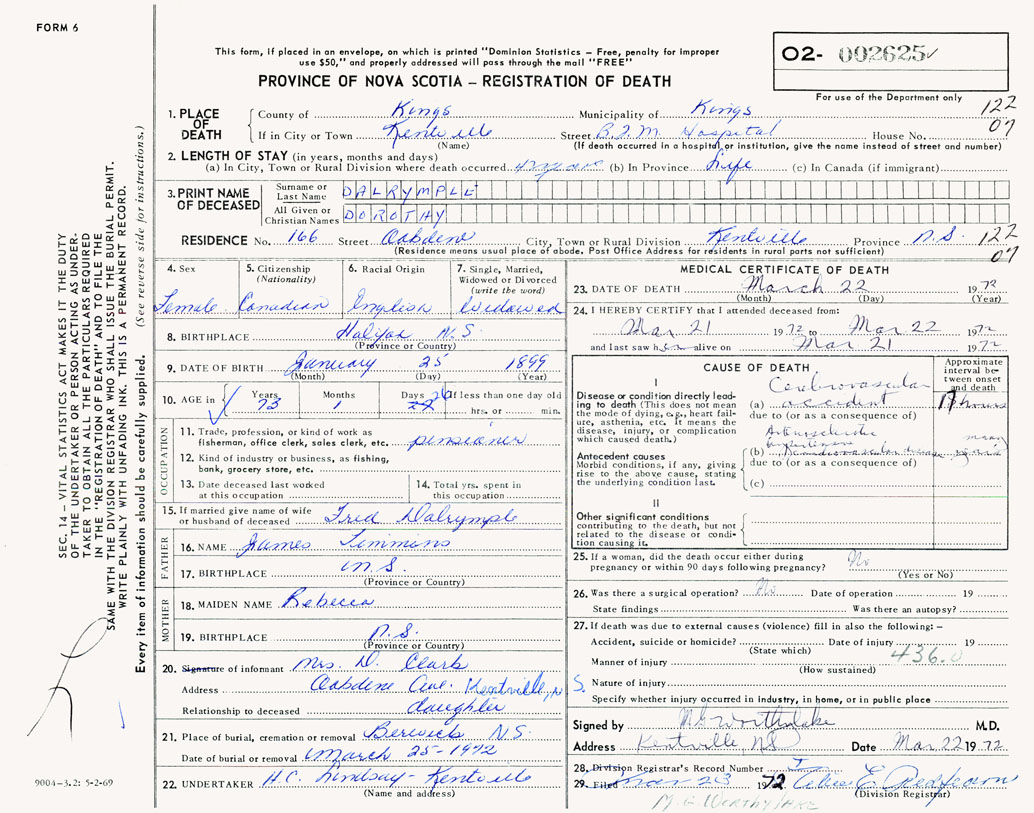 FORM 6
This form, if placed in an envelope, on which is printed "Dominion Statistics – Free, penalty for improper
use $50," and properly addressed will pass through the mail "FREE"
PROVINCE OF NOVA SCOTIA – REGISTRATION OF DEATH
O2- 002625
For use of the Department only
122
07
1. PLACE OF DEATH
County of Kings Municipality of Kings
If in City or Town Kentville Street B.F.M. Hospital House No.
(Name) (If death occurred in a hospital or institution, give the name instead of street and number)
2. LENGTH OF STAY (in years, months and days)
(a) In City, Town or Rural Division where death occurred 42 years (b) In Province Life (c) In Canada (if immigrant)
3. PRINT NAME OF DECEASED
Surname or Last Name DALRYMPLE
All Given or Christian Names DOROTHY
RESIDENCE No. 166 Street Oakdene City, Town or Rural Division Kentville Province N.S. 122
(Residence means usual place of abode. Post Office Address for residents in rural parts not sufficient) 07
4. Sex Female
5. Citizenship (Nationality) Canadian
6. Racial Origin English
7. Single, Married, Widowed or Divorced (write the word) Widowed
8. BIRTHPLACE Halifax N.S.
(Province or Country)
9. DATE OF BIRTH January 25 1899
(Month) (Day) (Year)
10. AGE in Years 73 Months 1 Days 26 If less than one day old
hrs. or min.
OCCUPATION
11. Trade, profession, or kind of work as
fisherman, office clerk, sales clerk, etc. pensioner
12. Kind of industry or business, as fishing,
bank, grocery store, etc.
13. Date deceased last worked
at this occupation
14. Total yrs. spent in
this occupation
15. If married give name of wife
or husband of deceased Fred Dalrymple
FATHER
16. NAME James Timmins
17. BIRTHPLACE N.S.
(Province or Country)
MOTHER
18. MAIDEN NAME Rebecca
19. BIRTHPLACE N.S.
(Province or Country)
20. Signature of informant Mrs. D. Clark
Address Oakdene Ave. Kentville, N
Relationship to deceased daughter
21. Place of burial, cremation or removal Berwick N.S.
Date of burial or removal March 25-1972
22. UNDERTAKER H.C. Lindsay - Kentville
(Name and address)
MEDICAL CERTIFICATE OF DEATH
23. DATE OF DEATH March 22 1972
(Month) (Day) (Year)
24. I HEREBY CERTIFY that I attended deceased from:
Mar 21 1972 to Mar 22 1972
and last saw her alive on Mar 21 1972
CAUSE OF DEATH
Approximate interval between onset and death
I
Disease or condition directly leading to death (This does not
the mode of dying, e.g., heart failure, asthenia, etc. It means the
disease, injury, or complication
which caused death.)
(a) Cerebrovascular accident 17 hours
due to (or as a consequence of)
Antecedent causes
Morbid conditions, if any, giving
rise to the above cause, stating
the underlying condition last.
(b) Arteriosclerotic hypertensive cardiovascular disease many years
due to (or as a consequence of)
(c)
II
Other significant conditions
contributing to the death, but not
related to the disease or condition causing it.
25. If a woman, did the death occur either during
pregnancy or within 90 days following pregnancy? No
(Yes or No)
26. Was there a surgical operation? No Date of operation 19
State findings Was there an autopsy?
27. If death was due to external causes (violence) fill in also the following: –
Accident, suicide or homicide? Date of injury 19
(State which) 436.0
Manner of injury
(How sustained)
Nature of injury
Specify whether injury occurred in industry, in home, or in public place
Signed by M.D.
Address Kentville NS Date Mar 22 1972
28. Division Registrar's Record Number
29. Filed Mar 23 1972
(Division Registrar)
SEC. 14 – VITAL STATISTICS ACT MAKES IT THE DUTY
OF THE UNDERTAKER OR PERSON ACTING AS UNDERTAKER TO OBTAIN ALL THE PARTICULARS REQUIRED
IN THE "REGISTRATION OF DEATH" AND TO FILE THE
SAME WITH THE DIVISION REGISTRAR WHO SHALL ISSUE THE BURIAL PERMIT.
WRITE PLAINLY WITH UNFADING INK. THIS IS A PERMANENT RECORD.
Every item of information should be carefully supplied. (See reverse side for instructions.)
9004-3.2: 5-2-69